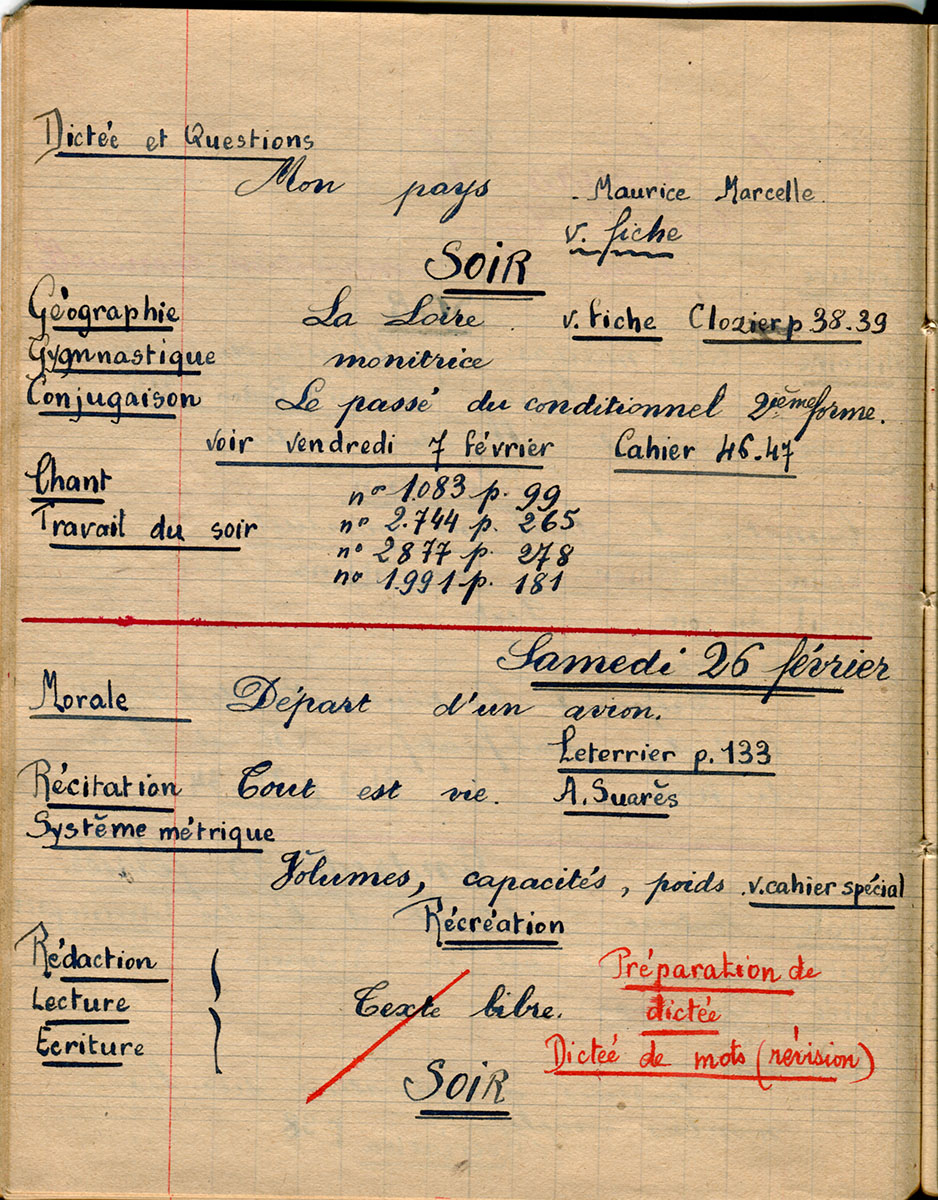 Dictée et Questions
Mon pays - Maurice Marcelle.
v. fiche
SOIR
Géographie La Loire. v. fiche Clozier p. 38-39
Gygmnastique monitrice
Conjugaison Le passé du conditionnel 2ème forme.
voir vendredi 7 février Cahier 46-47
Chant n° 1.083 p. 99
Travail du soir n° 2.744 p. 265
n° 2877 p. 278
n° 1.991 p. 181
Samedi 26 février
Morale Départ d'un avion.
Leterrier p. 133
Récitation Tout est vie. A. Suarès
Système métrique
Volumes, capacités, poids. v. cahier spécial
Récréation
Rédaction Préparation de
Lecture Texte libre. dictée
Ecriture Dictée de mots (révision)
SOIR